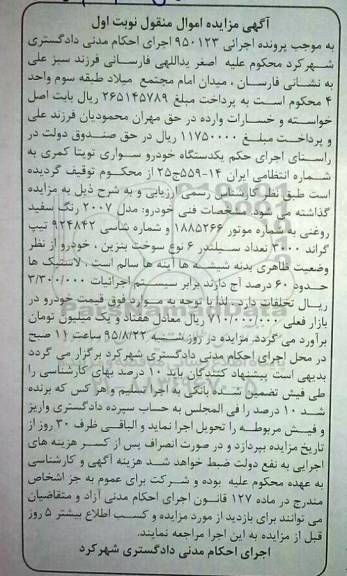 آگهی مزایده اموال منقول نوبت اول
به موجب پرونده اجرائی ۹۵۰۱۲۳ اجرای احکام مدنی دادگستری
شهرکرد محکوم علیه اصغر یداللهی فارسانی فرزند سبز علی
به نشانی فارسان ، میدان امام مجتمع میلاد طبقه سوم واحد
۴ محکوم است به پرداخت مبلغ ۲۶۵۱۴۵۷۸۹ ریال بابت اصل
خواسته و خسارات وارده در حق مهران محمودیان فرزند علی
و پرداخت مبلغ ۱۱۷۵۰۰۰۰ ریال در حق صندوق دولت در
راستای اجرای حکم یکدستگاه خودرو سواری تویتا کمری به
شماره انتظامی ایران ۱۴-۵۵۹ج۲۵ از محکوم توقیف گردیده
است طبق نظر کارشناس رسمی ارزیابی و به شرح ذیل به مزایده
گذاشته می شود. مشخصات فنی خودرو: مدل ۲۰۰۷ رنگ سفید
روغنی به شماره موتور ۱۸۸۵۲۶۶ و شماره شاسی ۹۲۴۸۴۲ تیپ
گراند ۳۰۰۰ تعداد سیلندر ۶ نوع سوخت بنزین ، خودرو از نظر
وضعیت ظاهری بدنه شیشه ها آینه ها سالم است ، لاستیک ها
حدود ۶۰ درصد آج دارند برابر سیستم اجرائیات ۳/۳۰۰/۰۰۰
ریال تخلفات دارد. لذا با توجه به موارد فوق قیمت خودرو در
بازار فعلی ۷۱۰/۰۰۰/۰۰۰ ریال معادل هفتاد و یک میلیون تومان
برآورد می گردد. مزایده در روز شنبه ۹۵/۸/۲۲ ساعت ۱۱ صبح
در محل اجرای احکام مدنی دادگستری شهرکرد برگزار می گردد
بدیهی است پیشنهاد کنندگان باید ۱۰ درصد بهای کارشناسی را
طی فیش تضمین شده بانکی به اجرا تسلیم و هر کس که برنده
شد ۱۰ درصد را فی المجلس به حساب سپرده دادگستری واریز
و فیش مربوطه را تحویل اجرا نماید و الباقی ظرف ۳۰ روز از
تاریخ مزایده بپردازد و در صورت انصراف پس از کسر هزینه های
اجرایی به نفع دولت ضبط خواهد شد هزینه آگهی و کارشناسی
به عهده محکوم علیه بوده و شرکت برای عموم به جز اشخاص
مندرج در ماده ۱۲۷ قانون اجرای احکام مدنی آزاد و متقاضیان
می توانند برای بازدید از مورد مزایده و کسب اطلاع بیشتر ۵ روز
قبل از مزایده به این اجرا مراجعه نمایند.
اجرای احکام مدنی دادگستری شهرکرد